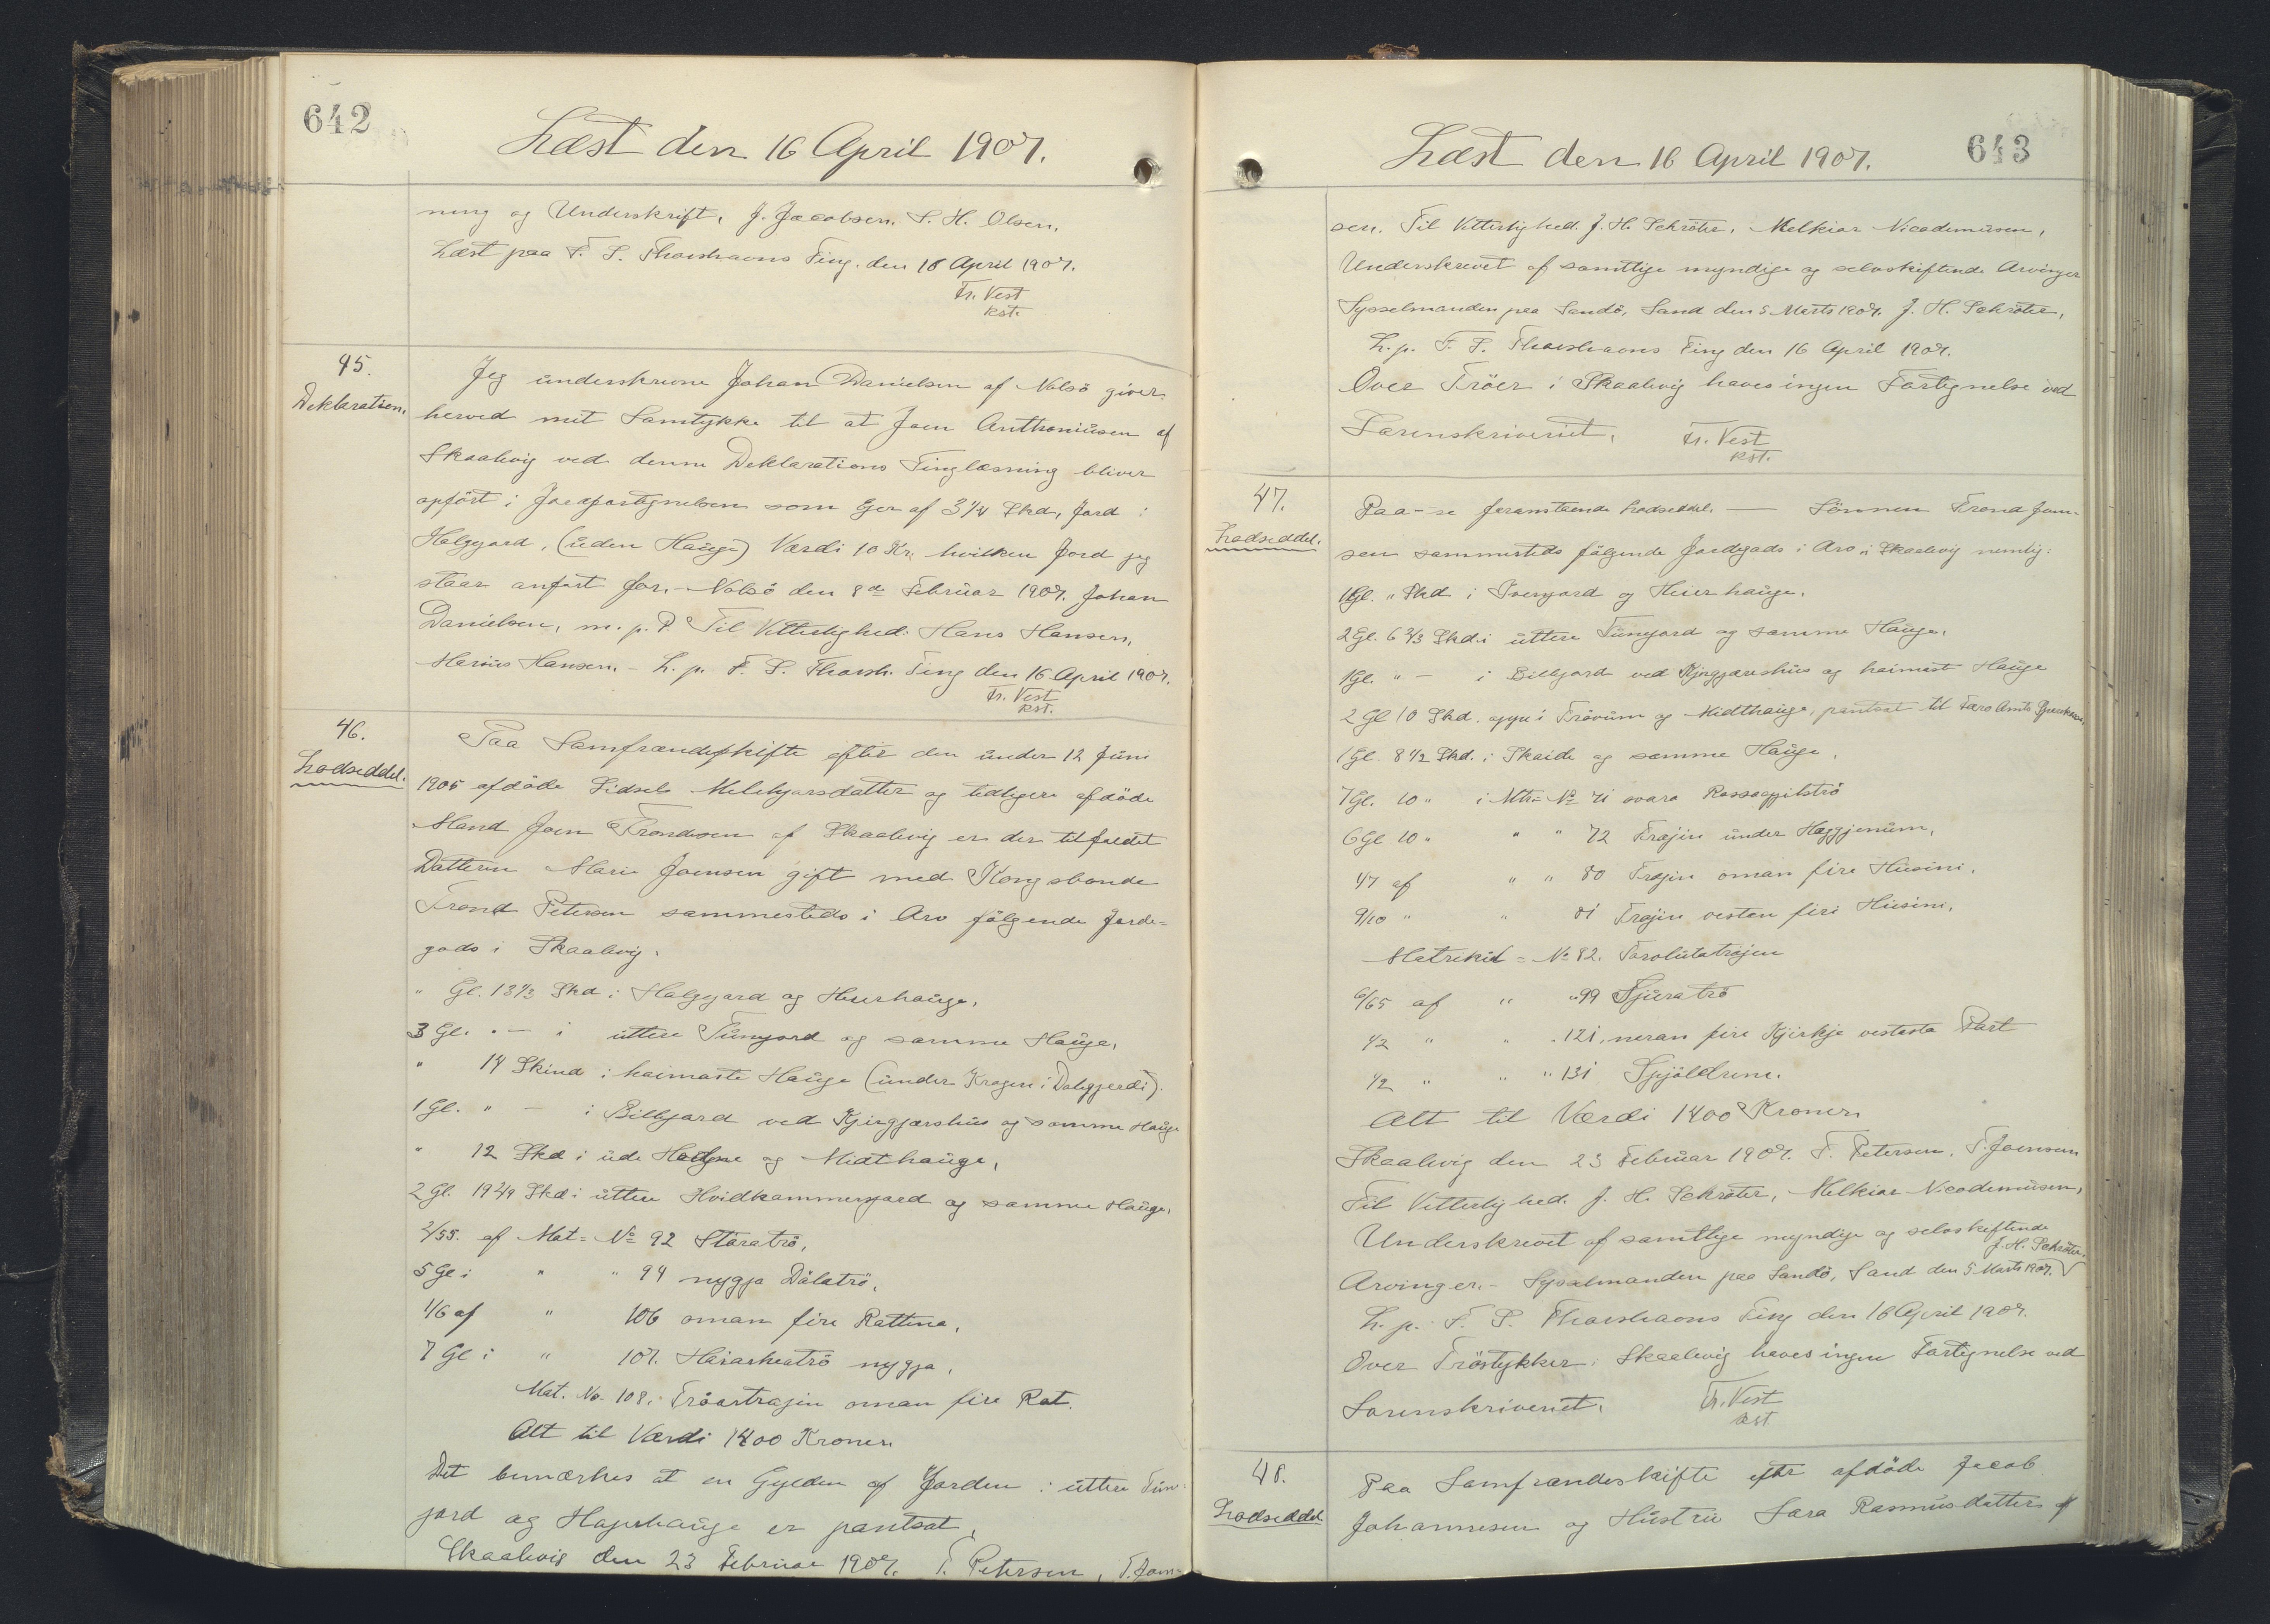 642
Læst den 16 April 1907.
ning og Underskrift. J. Jacobsen. S. H. Olsen.
Læst paa F. S. Thorshavns Ting. den 16 April 1907.
Fr. Vest
kst.
45.
Deklaration.
Jeg underskrevne Johan Danielsen af Nolsö giver
herved mit Samtykke til at Joen Anthoniusen af
Skaalevig ved denne Deklarations Tinglæsning bliver
opført i Jordfortegnelsen som Ejer af 3 1/4 Skd. Jord i
Halgjard, (uden Hauge) Værdi 10 Kr. hvilken Jord jeg
staar anført for. - Nolsö den 8de Februar 1907. Johan
Danielsen, m. p. P. Til Vitterlighed: Hans Hansen,
Marius Hansen. - L. p. F. S. Thorsh. Ting den 16 April 1907.
Fr. Vest
kst.
46.
Lodseddel.
Paa Samfrændeskifte efter den under 12 Juni
1905 afdöde Sidsel Melchjorsdatter og tidligere afdöde
Mand Joen Trondesen af Skaalevig er der tilfaldet
Datteren Marie Joensen gift med Kongsbonde
Trond Petersen sammesteds i Arv fölgende Jorde-
gods i Skaalevig.
" Gl. 13 1/3 Skd i Halgjard og Heierhauge,
3 Gl. " — i uttere Tungjord og samme Hauge,
" 14 Skind i heimaste Hauge (under Kragen i Dalegjerdi).
1 Gl. " — i Billgjard ved Kjirgjarshus og samme Hauge
" 12 Skd i ude og Midthauge,
2 Gl. 19 4/9 Skd i uttere Hvidkammergjard og samme Hauge,
2/55. af Mat= No 92 Storatrö,
5 Gl i " " 94 nygja Dalatrö,
1/6 af " 106 oman fire Rattina,
7 Gl i " 107. nygja,
Mat. No. 108. oman fire Rat.
Alt til Værdi 1400 Kroner
Det bemærkes at en Gylden af Jorden i uttere Tun-
jord og er pantsat,
Skaalevig den 23 Februar 1907. T. Petersen, T. Joen-
643
Læst den 16 April 1907.
sen. Til Vitterlighed. J. H. Schröter, Melkiar Nicodemusen,
Underskrevet af samtlige myndige og selvskiftende Arvinger
Sysselmanden paa Sandö, Sand den 5 Marts 1907. J. H. Schröter,
L. p. F. S. Thorshavns Ting den 16 April 1907.
Over Tröer i Skaalevig haves ingen Fortegnelse ved
Sorenskriveriet. Fr. Vest
kst.
47.
Lodseddel.
Paa - se foranstaaende Lodseddel. — Sönnen Trond Joen-
sen sammesteds fölgende Jordegods i Arv i Skaalevig nemlig:
1 Gl. " Skd i og Heierhauge.
2 Gl. 6 2/3 Skd. i uttere Tungjord og samme Hauge.
1 Gl. " — i Billgjard ved Kjirgjarshus og heimast Hauge
2 Gl 10 Skd. oppe i Trövum og Midthauge, pantsat til Færø Amts
1 Gl. 8 1/2 Skd. i Skaide og samme Hauge,
7 Gl. 10 " i Mtr= No 71
6 Gl 10 " " " 72 Trajin under Haggjenum,
4/7 af " " 80 Trajin oman fire Husini,
9/10 " " 81 Trajin vestan firi Husini,
Matrikul= No 82.
6/65 af " " 99 Sjuratrö
1/2 " " " 121, neran fire Kjirkje vestasta Part
1/2 " " " 131
Alt til Værdi 1400 Kroner
Skaalevig den 23 Februar 1907. T. Petersen. T. Joensen
Til Vitterlighed. J. H. Schröter, Melkiar Nicodemusen,
Underskrevet af samtlige myndige og selvskiftende
Arvinger. - Sysselmanden paa Sandö, Sand den 5 Marts 1907. J. H. Schröter.
L. p. F. S. Thorshavns Ting den 16 April 1907.
Over Tröstykker i Skaalevig haves ingen Fortegnelse ved
Sorenskriveriet. Fr. Vest
kst
48.
Lodseddel
Paa Samfrændeskifte efter afdöde Jacob
Johannesen og Hustru Sara Rasmusdatter af